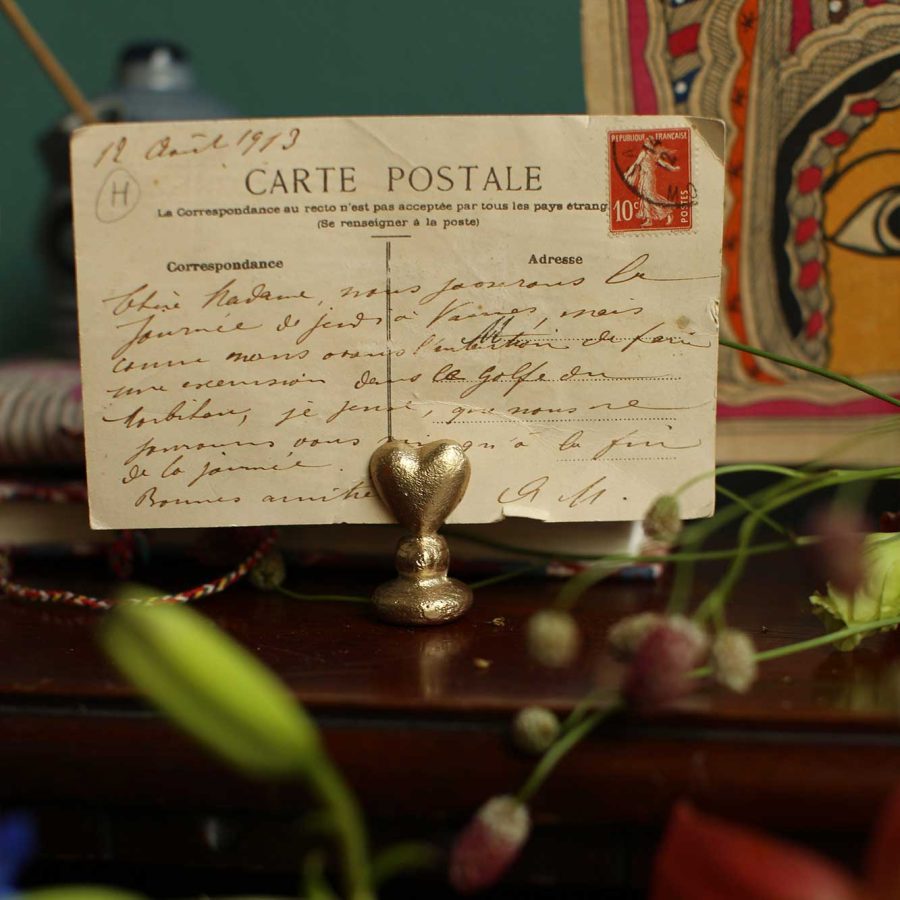 12 Août 1913
H
CARTE POSTALE
La Correspondance au recto n'est pas acceptée par tous les pays étrang
(Se renseigner à la poste)
REPUBLIQUE FRANÇAISE
10c
POSTES
Correspondance
Adresse
Chère Madame, nous passerons la
journée de jeudi à Vannes, mais
comme nous avons l'intention de faire
une excursion dans le Golfe du
Morbihan, je pense, que nous ne
pourrons vous qu'à la fin
de la journée.
Bonnes amitiés
M.